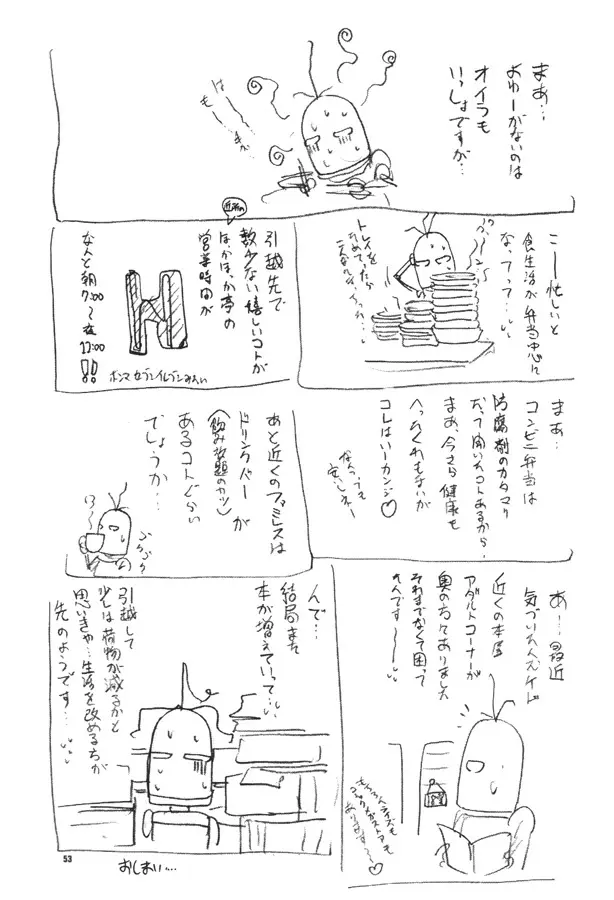 まあ…
よゆーがないのは
オイラも
いっしょですが…
は〜
も〜
こー忙しいと
食生活が弁当中心に
なってって…
トレイを
ためてったら
引越先で
数少ない嬉しいコトが
近所の
ほかほか亭の
営業時間が
なんと朝
7:00
〜夜
17:00
!!
ホンマセブンイレブンみたい
まあ…
コンビニ弁当は
防腐剤のカタマリ
だって聞いたコトあるから、
まあ、今さら健康も
へったくれもないが
コレはいーカンジ♡
なんつっても
安いしねー
あと近くのファミレスは
ドリンクバーが
(飲み放題のカツ)
あるコトぐらい
でしょうか…
あ…最近
気づいたんスケド
近くの本屋
アダルトコーナーが
奥の方にありました
それまでなくて困って
たんです〜
んで…
結局また
本が増えていって…
引越して
少しは荷物が減るかと
思いきや…生活を改める方が
先のようです…
おしまい…
53